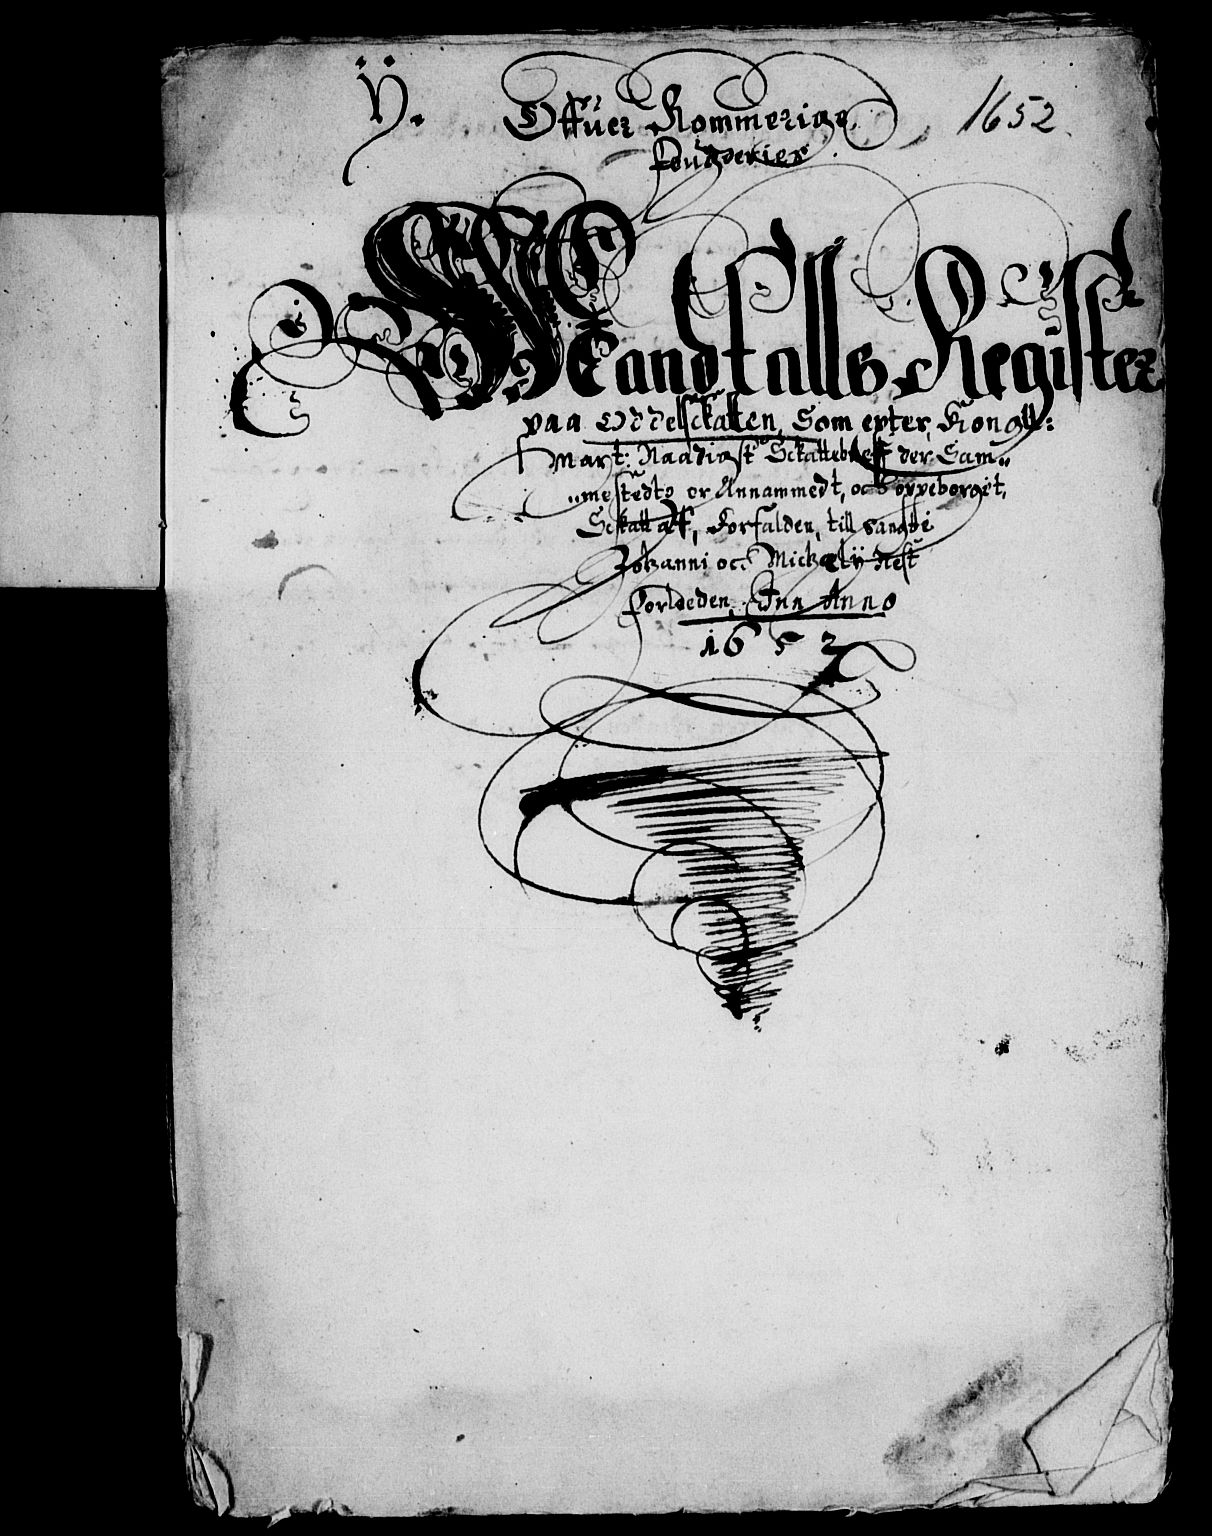 Ÿ.
1652
Offuer Rommerigs
fougderies
Mandtalls Register
paa Oddelsckatten, Som epter, Kongl:
Mayt: Naadigst Sckattebreff der Sam„
„mestedtz er Annammedt, och oppeborget,
Sckatt aff, Forfalden, till Sangte
Johanni och Michælij Nest
forleeden, Inn Anno
1652